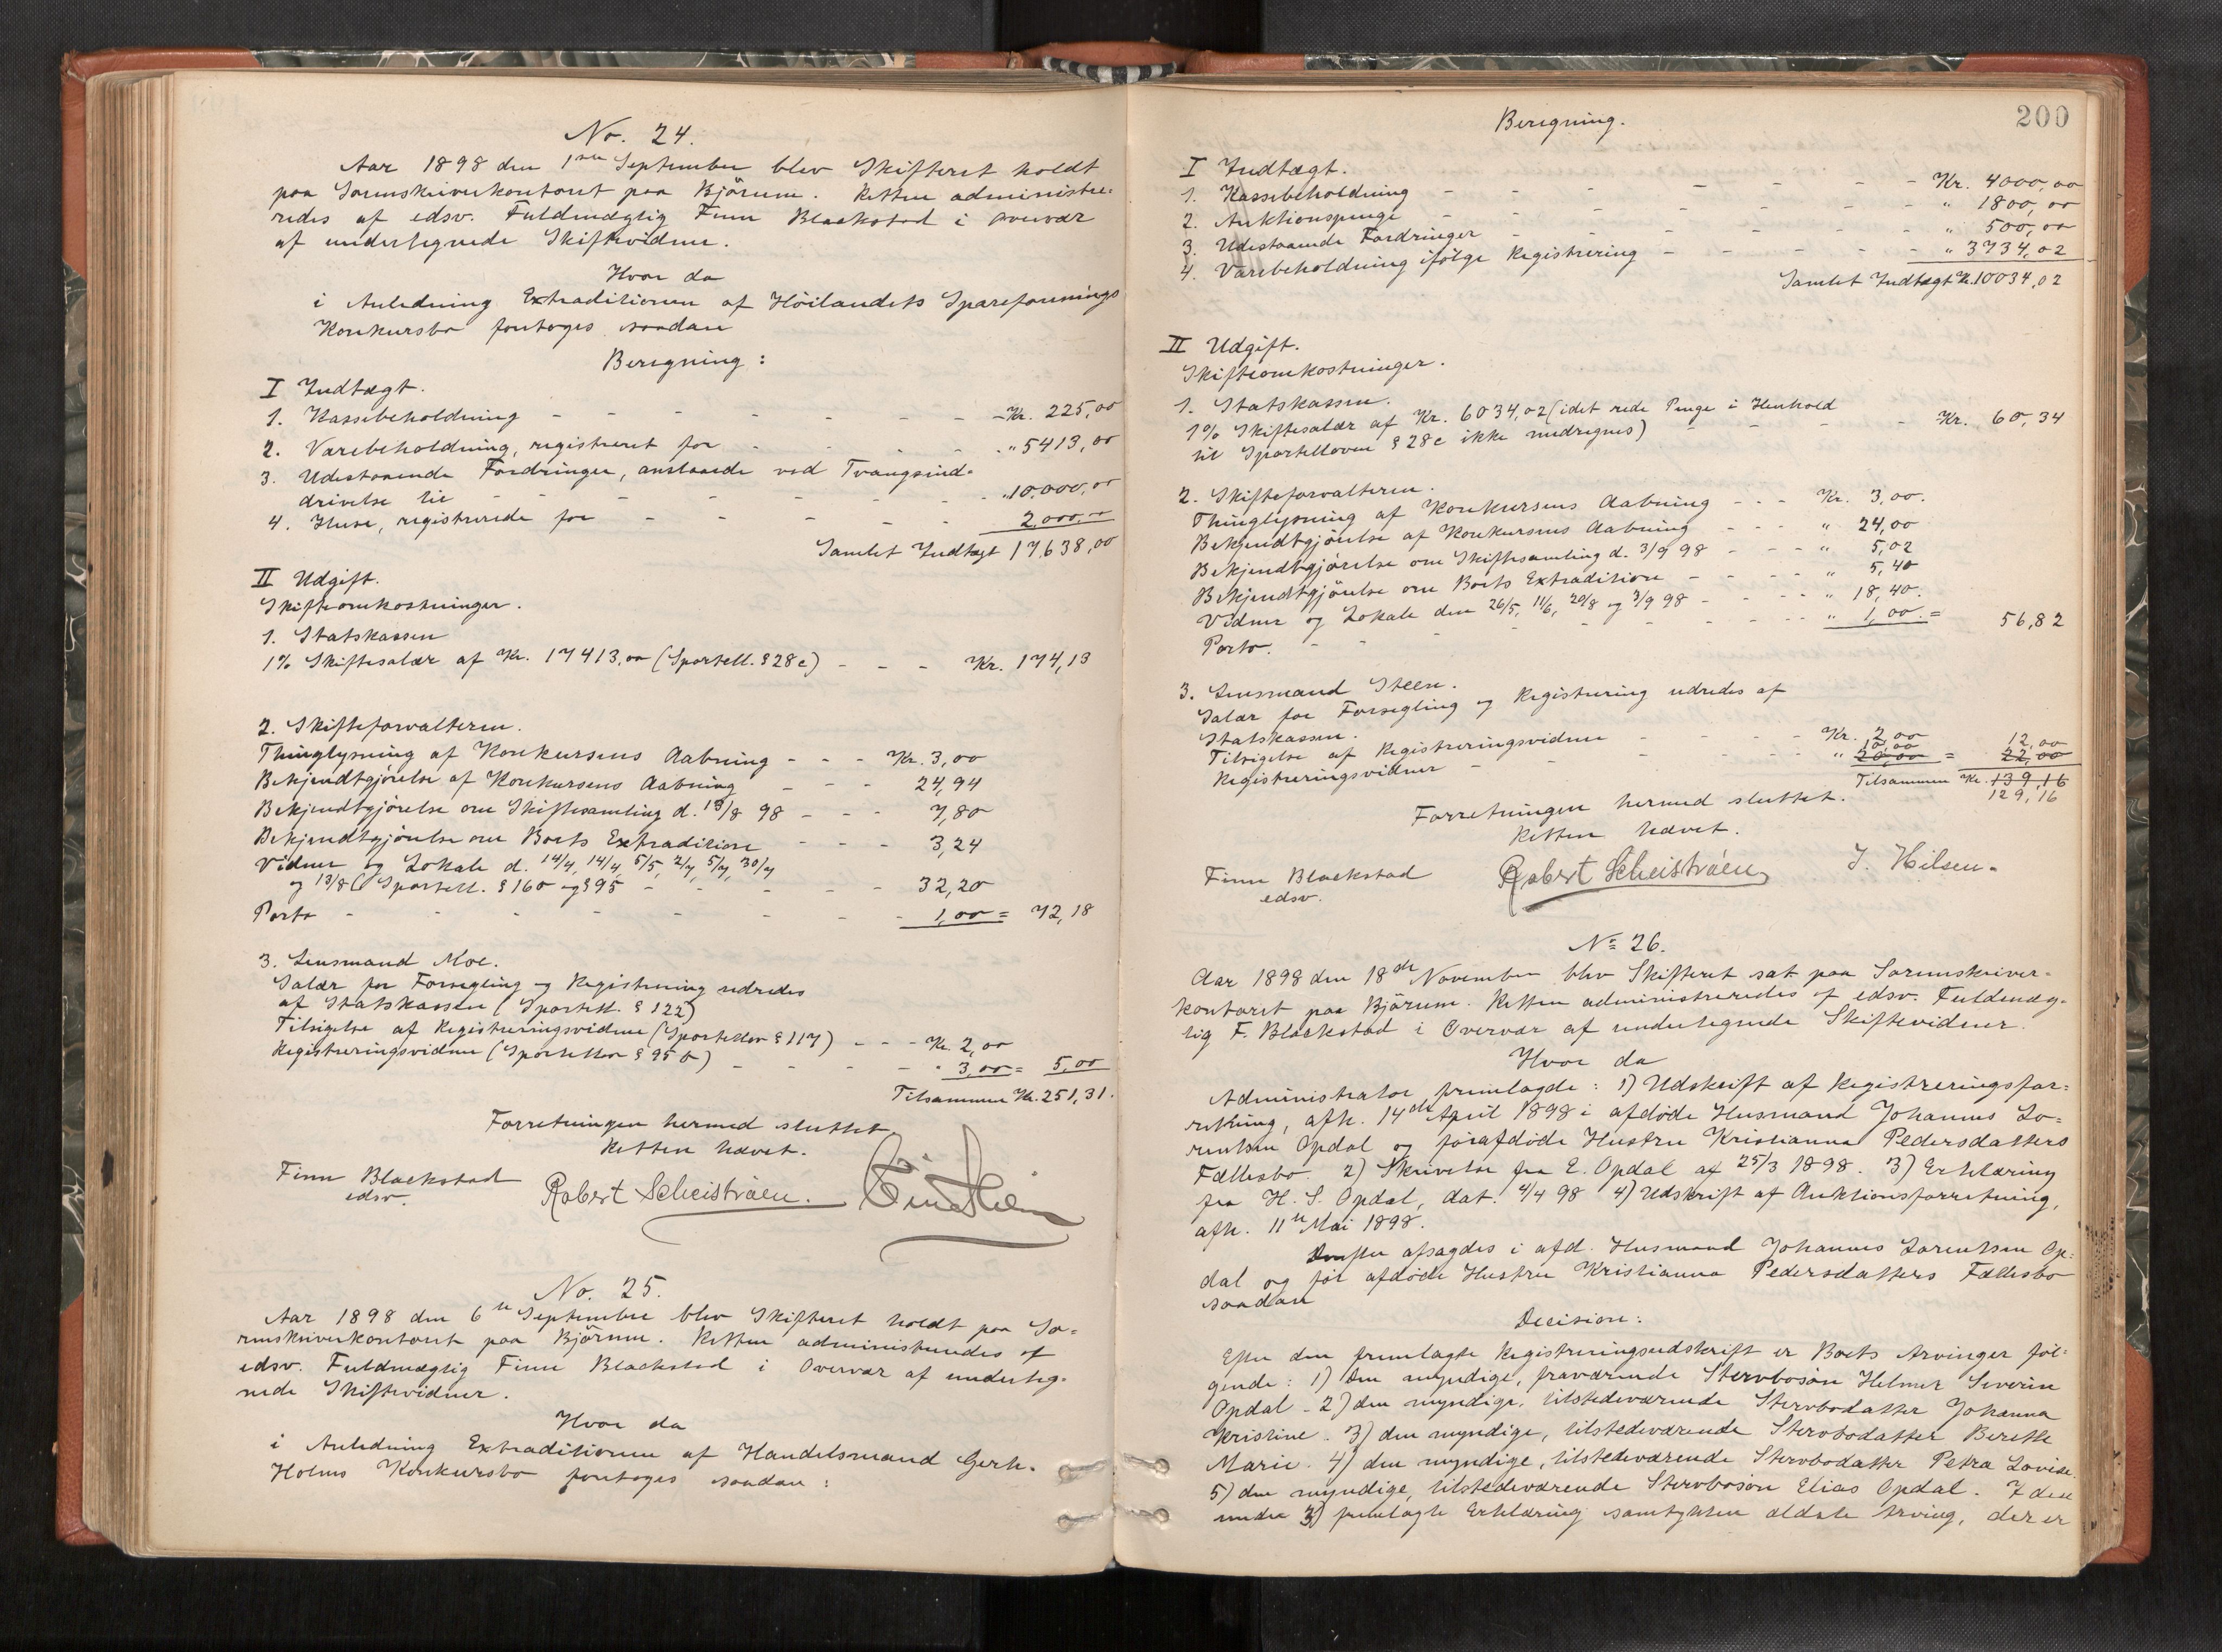 No. 24.
Aar 1898 den 1ste September blev Skifteret holdt
paa Sorenskriverkontoret paa Bjørum. Retten administre-
redes af edsv. Fuldmægtig Finn Blackstad i Overvær
af undertegnede Skiftevidner.
Hvor da
i Anledning Extraditionen af Höilandets Spareforenings
Konkursbo foretoges saadan
Beregning:
I Indtægt.
1. Kassebeholdning - - - - - - Kr. 225,00
2. Varebeholdning, registreret for - - - - " 5413,00
3. Udestaaende Fordringer, anslaaede ved Tvangsind-
drivelse til - - - - - - " 10,000,00
4. Huse, registrerede for - - - - - 2,000,-
Samlet Indtægt 17,638,00
II Udgift.
Skifteomkostninger.
1. Statskassen
1% Skiftesalær af Kr. 17413,00 (Sportell. § 28 c) - - - Kr. 174,13
2. Skifteforvalteren.
Thinglysning af Konkursens Aabning - - - Kr. 3,00
Bekjendtgjörelse af Konkursens Aabning - - - 24,94
Bekjendtgjörelse om Skiftesamling d. 13/8 98 - - - 7,80
Bekjendtgjörelse om Boets Extradition - - - 3,24
Vidner og Lokale d. 14/4, 14/4, 5/5, 2/7, 5/7, 30/7
og 13/8 (Sportell. § 160 og § 95 - - - - 32,20
Porto - - - - - - - 1,00 = 72,18
3. Lensmand Moe.
Salær for Forsegling og Registrering udredes
af Statskassen (Sportell. § 122)
Tilsigelse af Registreringsvidner (Sportelloven § 117) - - - Kr. 2,00
Registreringsvidner (Sportelloven § 95 b) - - - - - " 3,00 = 5,00
Tilsammen Kr. 251,31.
Forretningen hermed sluttet.
Retten hævet.
Finn Blackstad
edsv.
Robert Scheistrøen.
No. 25.
Aar 1898 den 6te September blev Skifteret holdt paa So-
renskriverkontoret paa Bjørum. Retten administreredes af
edsv. Fuldmægtig Finn Blackstad i Overvær af underteg-
nede Skiftevidner.
Hvor da
i Anledning Extraditionen af Handelsmand Gerh.
Holms Konkursbo foretoges saadan:
200
Beregning.
I Indtægt.
1. Kassebeholdning - - - - - - - Kr. 4000,00
2. Auktionspenge - - - - - - - " 1800,00
3. Udestaaende Fordringer - - - - - - " 500,00
4. Varebeholdning ifölge Registrering - - - - - " 3734,02
Samlet Indtægt Kr. 10034,02
II Udgift.
Skifteomkostninger.
1. Statskassen.
1% Skiftesalær af Kr. 6034,02 (idet rede Penge i Henhold
til Sportelloven § 28 c ikke medregnes) - - - - Kr. 60,34
2. Skifteforvalteren.
Thinglysning af Konkursens Aabning - - - Kr. 3,00.
Bekjendtgjörelse af Konkursens Aabning - - - " 24,00
Bekjendtgjörelse om Skiftesamling d. 3/9 98 - - - " 5,02
Bekjendtgjörelse om Boets Extradition - - - " 5,40
Vidner og Lokale den 26/5, 11/6, 20/8 og 3/9 98 - - - - " 18,40.
Porto. - - - - - - - " 1,00. = 56,82
3. Lensmand Steen.
Salær for Forsegling og Registrering udredes af
Statskassen.
Tilsigelse af Registreringsvidner - - - - Kr. 2,00
Registreringsvidner - - - - - - " 20,00 10,00 = 22,00 12,00
Tilsammen Kr. 139,16
129,16
Forretningen hermed sluttet.
Retten hævet.
Finn Blackstad
edsv.
Robert Scheistrøen
J. Hilsen.
No. 26.
Aar 1898 den 18de November blev Skifteret sat paa Sorenskriver-
kontoret paa Bjørum. Retten administreredes af edsv. Fuldmæg-
tig F. Blackstad i Overvær af undertegnede Skiftevidner.
Hvor da
Administrator fremlagde: 1) Udskrift af Registreringsfor-
retning, afh. 14de April 1898 i afdöde Husmand Johannes Lo-
rentsen Opdal og förafdöde Hustru Kristianna Pedersdatters
Fællesbo. 2) Skrivelse fra E. Opdal af 25/3 1898. 3) Erklæring
fra H. S. Opdal, dat. 4/4 98 4) Udskrift af Auktionsforretning,
afh. 11te Mai 1898.
Derefter afsagdes i afd. Husmand Johannes Lorentsen Op-
dal og för afdöde Hustru Kristianna Pedersdatters Fællesbo
saadan
Decision:
Efter den fremlagte Registreringsudskrift er Boets Arvinger föl-
gende: 1) den myndige, fraværende Stervbosön Helmer Severin
Opdal - 2) den myndige, tilstedeværende Stervbodatter Johanna
Kristine. 3) den myndige, tilstedeværende Stervbodatter Berette
Marie. 4) den myndige, tilstedeværende Stervbodatter Petra Lovise.
5) den myndige, tilstedeværende Stervbosön Elias Opdal. I den
under 3) fremlagte Erklæring samtykker ældste Arving, der er